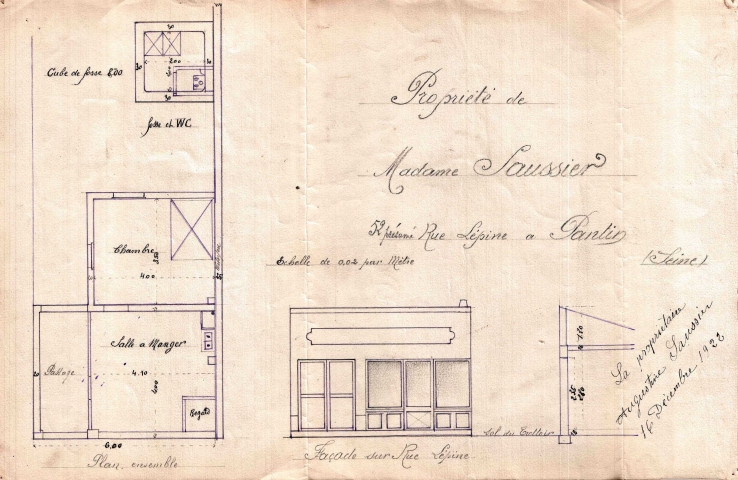 Cube de fosse 6,00
30
200
30
30
fosse et WC.
Propriété de
Madame Saussier
52 présumé Rue Lépine a Pantin
(Seine)
Echelle de 0.02 par Mètre
Chambre
350
400
Passage
Salle a Manger
4.10
400
Regard
6,00
Plan ensemble
Façade sur Rue Lépine
sol du Trottoir
La propriétaire
Augustine Saussier
16 Décembre 1922